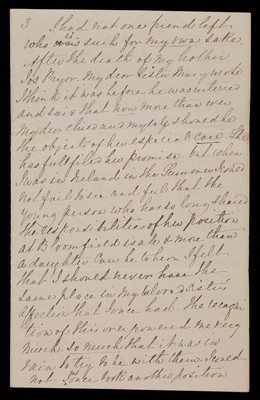 3 I had not one friend left
who is such for my own sake.
After the death of my brother
Jos Pryor. My dear Sister Mary wrote
I think it was before he was interred
and said that now more than ever
my dear child and myself should be
the objects of her especial care. She
has fulfilled her promise. but when
I was in Ireland in the Summer I could
not fail to see and feel that the
young person who has so long shared
the responsibilities of her position
as Bloomfield is able & more than
a daughter can be to her. I felt
that I should never have the
same place in my blood Sister's
affection that I once had. The recogni
tion of this overpowered me very
much. So much that it was in
vain to try to be with them I could
not. I once took another position